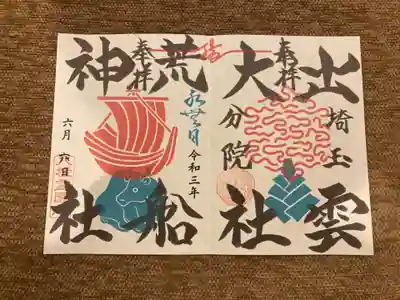 出雲
埼玉
奉拝
大社
分院
荒船
奉拝
神社
水無月
令和三年
六月
六日